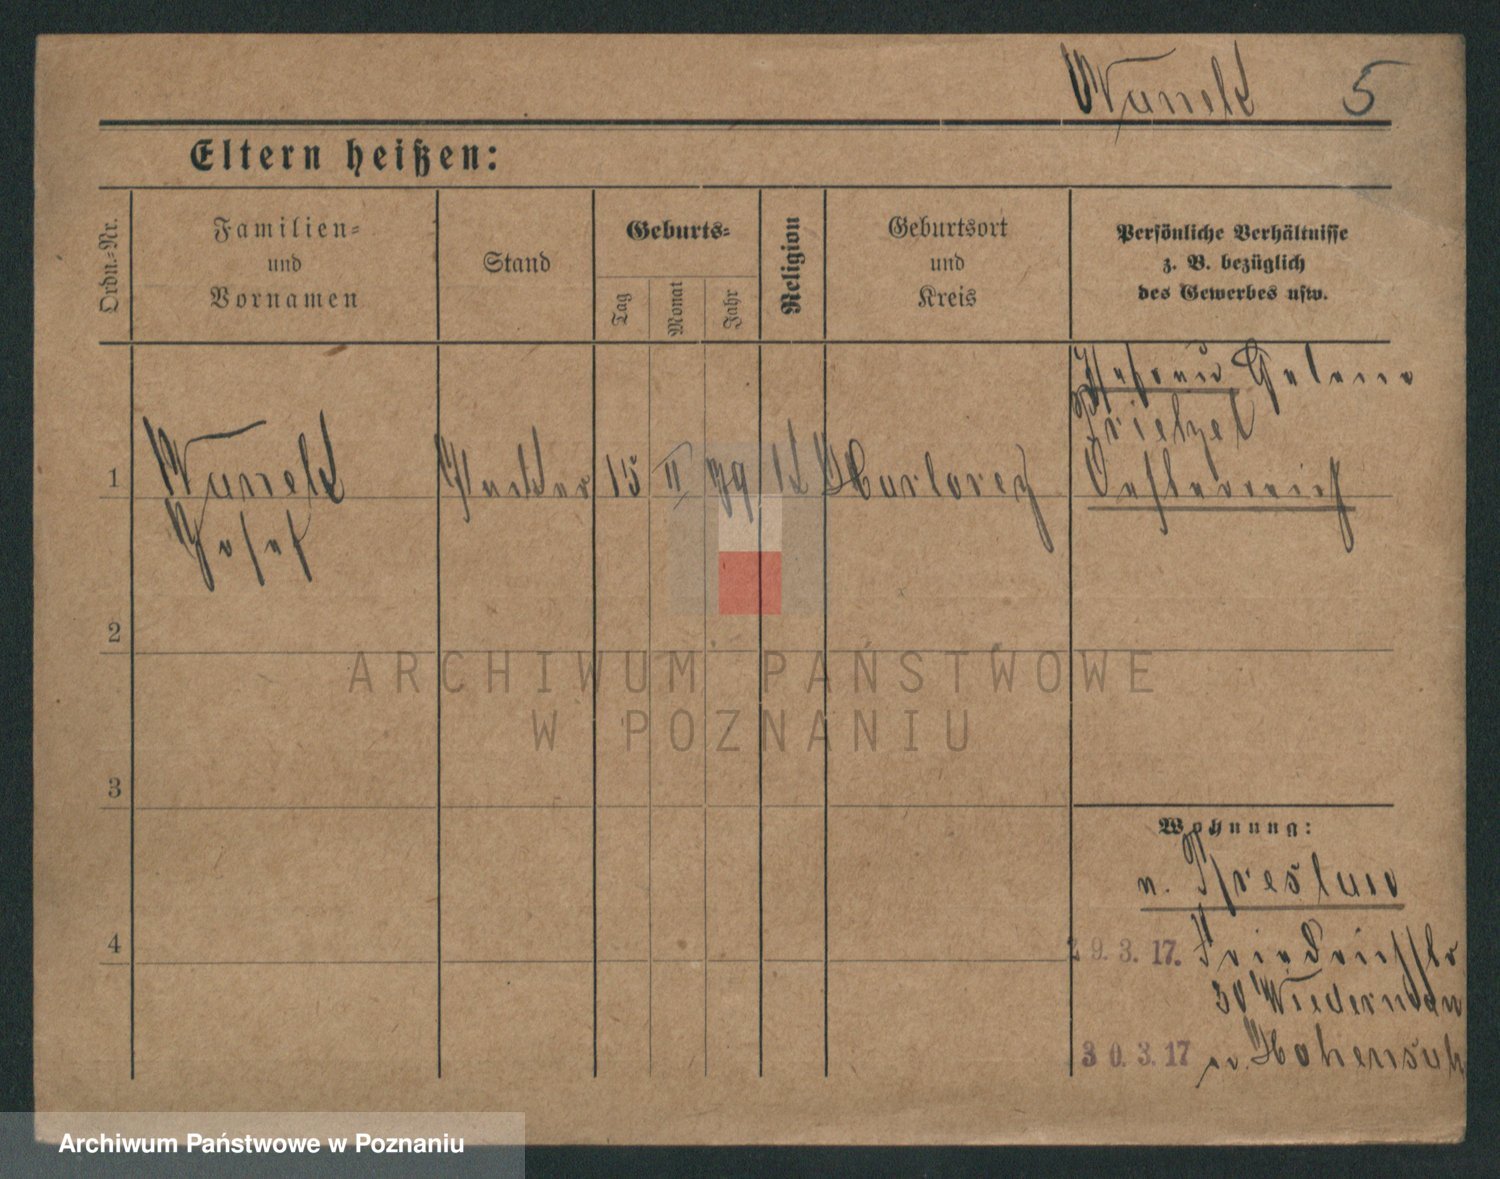 Wanek 5
Eltern heißen:
Ordn.-Nr.
Familien-
und
Vornamen
Stand
Geburts-
Tag
Monat
Jahr
Religion
Geburtsort
und
Kreis
Persönliche Verhältnisse
z. B. bezüglich
des Gewerbes usw.
Ehefrau
1
Wanek
15 II 79 k
Oesterreich
Josef
2
ARCHIWUM PAŃSTWOWE
W POZNANIU
3
Wohnung:
n. Breslau
4
29.3.17. Friedrichstr
30 Wiederman
30.3.17 n.
Archiwum Państwowe w Poznaniu